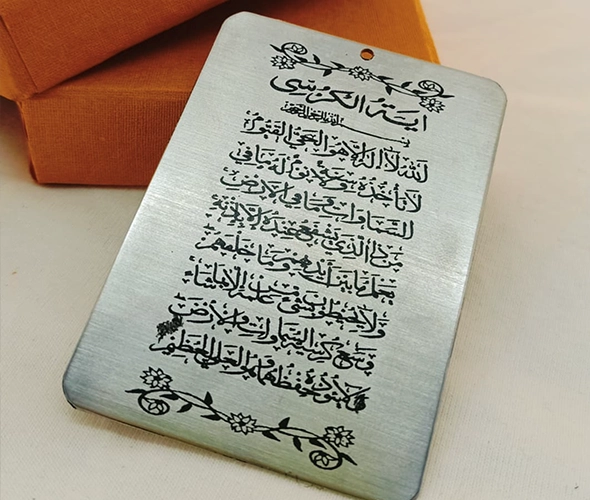 ايـة الكرسى
بسم الله الرحمن الرحيم
الله لا اله الا هو الحي القيوم
لا تأخذه سنة ولا نوم له ما في
السماوات وما في الارض
من ذا الذي يشفع عنده الا بإذنه
يعلم ما بين أيديهم وما خلفهم
ولا يحيطون بشئ من علمه الا بما شاء
وسع كرسيه السماوات والارض
ولا يئوده حفظهما وهو العلي العظيم